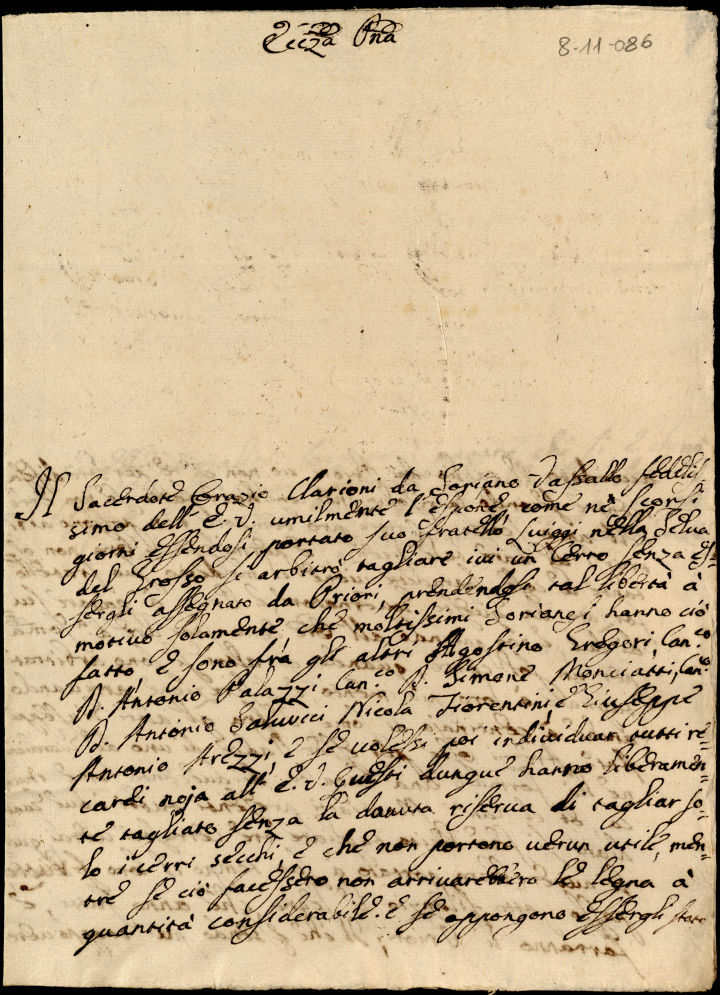 Ecc.za Pña
8-11-086
Il Sacerdote Orazio Clarioni da Soriano Vassallo fedelis
simo dell' E. V. umilmente l'espone, come ne scorsi
giorni essendosi portato suo fratello Luiggi nella Selva
del Grosso si arbitrò tagliare ivi un Cerro senza es=
sergli assegnato da Priori, prendendosi tal libertà à
motivo solamente che moltissimi Sorianesi hanno ciò
fatto, e sono frà gli altri Agostino Gregori, Can.co
D. Antonio Palazzi, Can.co D. Simone Monciatti, Can.co
D. Antonio Salvucci Nicola Fiorentini, e Giuseppe
Antonio Arezzi, e se volessi poi individuar tutti re=
cardi noja all' E. V. Questi dunque hanno liberamen=
te tagliato senza la dovuta riserva di tagliar so=
lo i cerri secchi, e che non portono verun utile, men=
tre se ciò facessero non arrivarebbero le legna à
quantità considerabile. E se oppongono essergli state